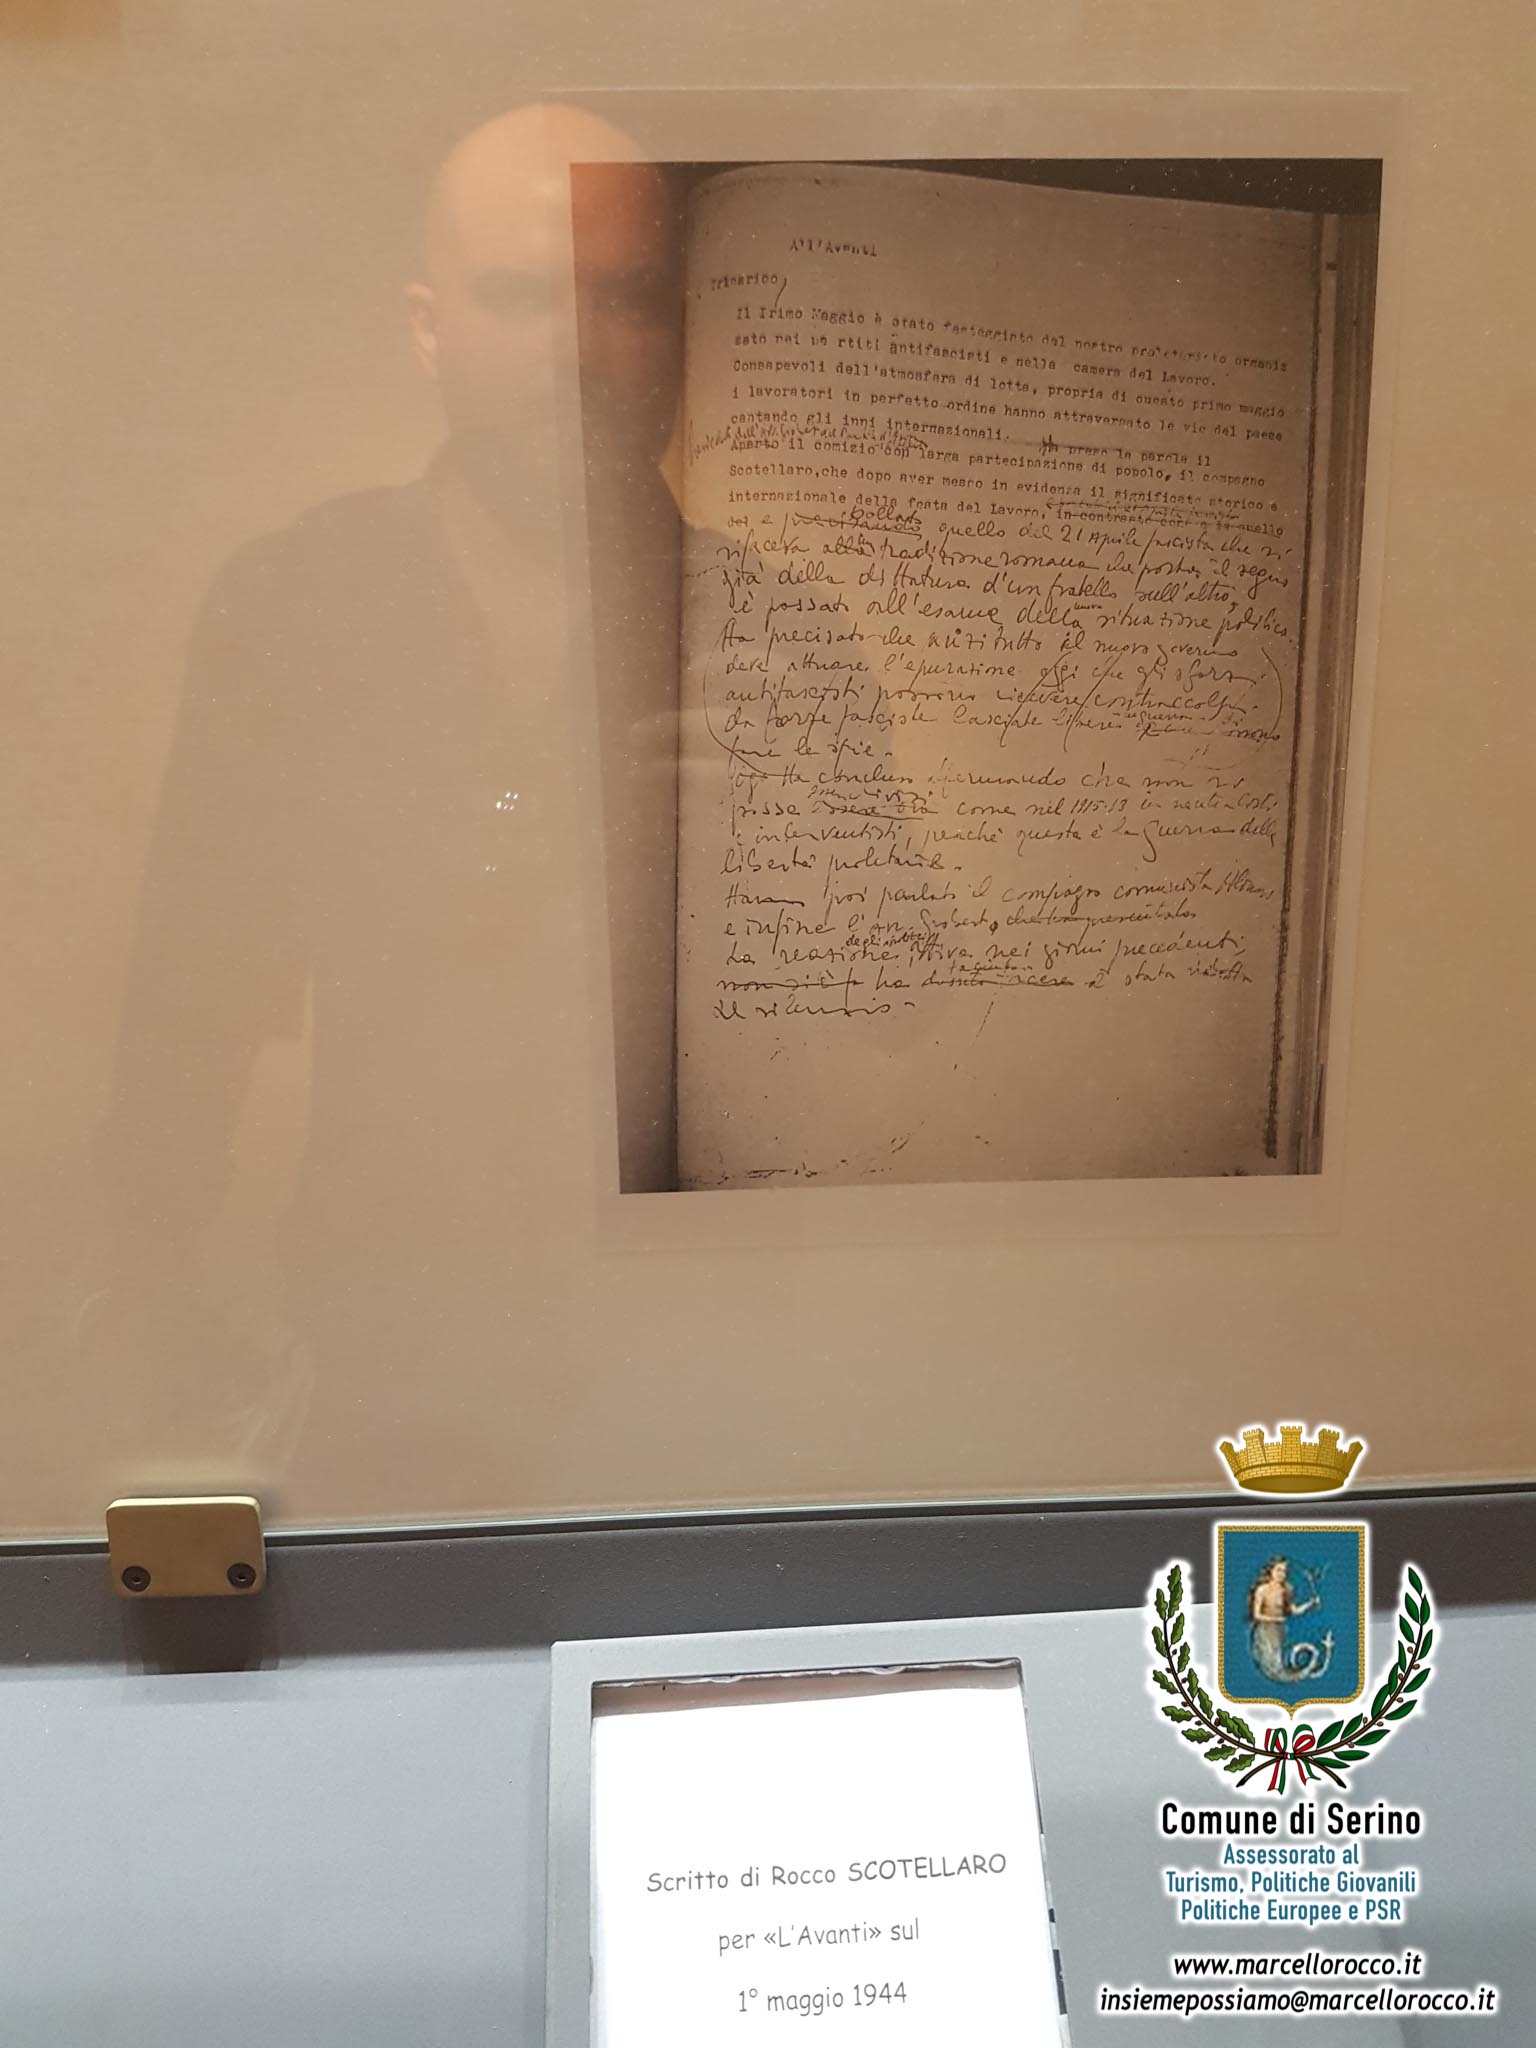 All'Avanti
Tricarico,
Il Irimo Maggio è stato festeggiato dal nostro proletariato organiz
zato nei pa rtiti antifascisti e nella camera del Lavoro.
Consapevoli dell'atmosfera di lotta, propria di questo primo maggio
i lavoratori in perfetto ordine hanno attraversato le vie del paese
cantando gli inni internazionali. Ha preso la parola il
Aperto il comizio con larga partecipazione di popolo, il compagno
Scotellaro, che dopo aver messo in evidenza il significato storico e
internazionale della festa del Lavoro, in contrasto con quello
e bollato quello del 21 Aprile fascista che si
rifaceva alla tradizione romana che porta il segno
già della dittatura d'un fratello sull'altro,
è passato all'esame della nuova situazione politica.
Ha precisato che anzitutto il nuovo governo
deve attuare l'epurazione oggi che gli sforzi
antifascisti possono ricevere contraccolpi
da forze fasciste lasciate libere
fare le spie.
Ha concluso affermando che non si
possa come nel 1915-18 in neutralisti
e interventisti, perché questa è la guerra della
libertà proletaria.
Hanno poi parlato il compagno comunista
e infine l'
La reazione degli viva nei giorni precedenti,
ha è stata
Il silenzio.
Scritto di Rocco SCOTELLARO
per «L'Avanti» sul
1° maggio 1944
Comune di Serino
Assessorato al
Turismo, Politiche Giovanili
Politiche Europee e PSR
www.marcellorocco.it
insiemepossiamo@marcellorocco.it